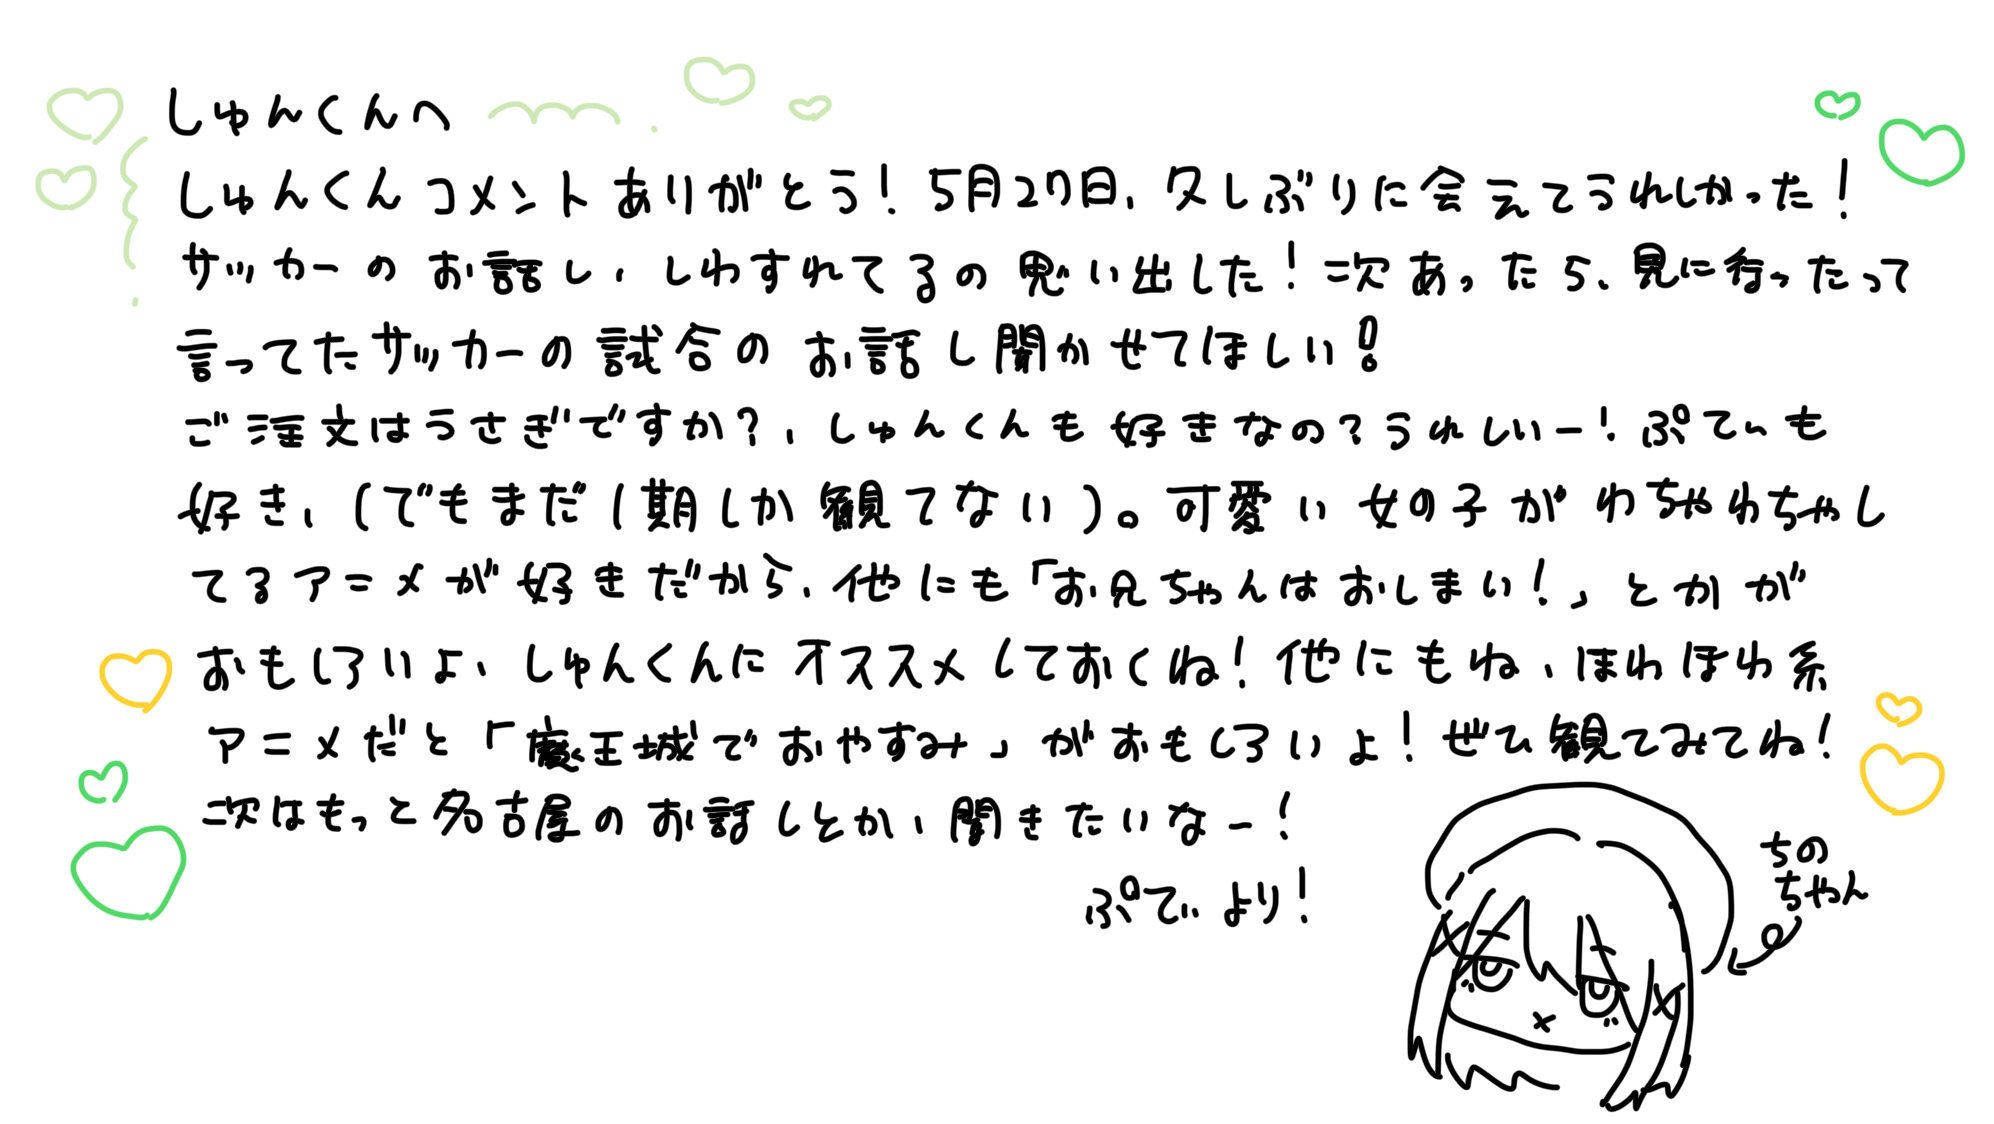 しゅんくんへ
しゅんくんコメントありがとう！5月27日、久しぶりに会えてうれしかった！
サッカーのお話し、しわすれてるの思い出した！次あったら、見に行ったって
言ってたサッカーの試合のお話し聞かせてほしい！
ご注文はうさぎですか？、しゅんくんも好きなの？うれしいー！ぷてぃも
好き、(でもまだ1期しか観てない)。可愛い女の子がわちゃわちゃし
てるアニメが好きだから、他にも「お兄ちゃんはおしまい！」とかが
おもしろいよ、しゅんくんにオススメしておくね！他にもね、ほわほわ系
アニメだと「魔王城でおやすみ」がおもしろいよ！ぜひ観てみてね！
次はもっと名古屋のお話しとかい聞きたいなー！
ぷてぃより！
ちの
ちゃん